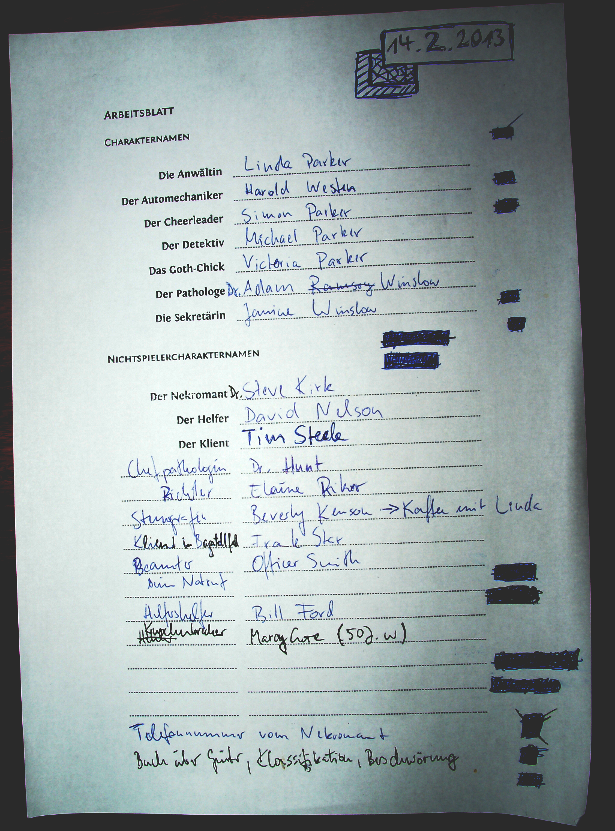 14.2.2013
ARBEITSBLATT
CHARAKTERNAMEN
Die Anwältin Linda Parker
Der Automechaniker Harold Westen
Der Cheerleader Simon Parker
Der Detektiv Michael Parker
Das Goth-Chick Victoria Parker
Der Pathologe Dr. Adam Ramsay Winslow
Die Sekretärin Janine Winslow
NICHTSPIELERCHARAKTERNAMEN
Der Nekromant Dr. Steve Kirk
Der Helfer David Nelson
Der Klient Tim Steele
Chefpathologin Dr. Hunt
Richter Elaine Riker
Stenografin Beverly Kenson → Kaffee mit Linda
Klient in
Beamter Officer Smith
Notruf
Hilfshelfer Bill Ford
Knochenbrecher (50J. w)
Telefonnummer vom Nekromant
Buch über Geister, Klassifikation, Beschwörung